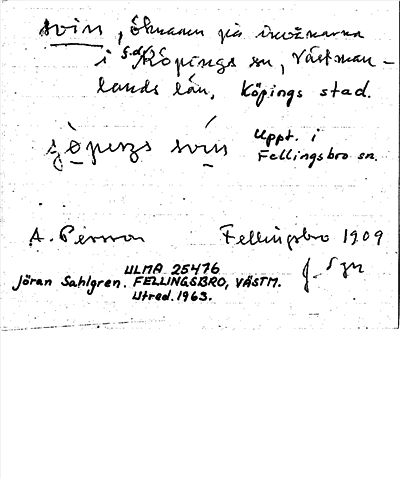 svin, öknamn på invånarna
i s.d. Köpings sn, Västman-
lands län, Köpings stad.
svin
Uppt. i
Fellingsbro sn.
A. Person Fellingsbro 1909
ULMA 25476
Jöran Sahlgren. FELLINGSBRO, VÄSTM.
Utred. 1963.